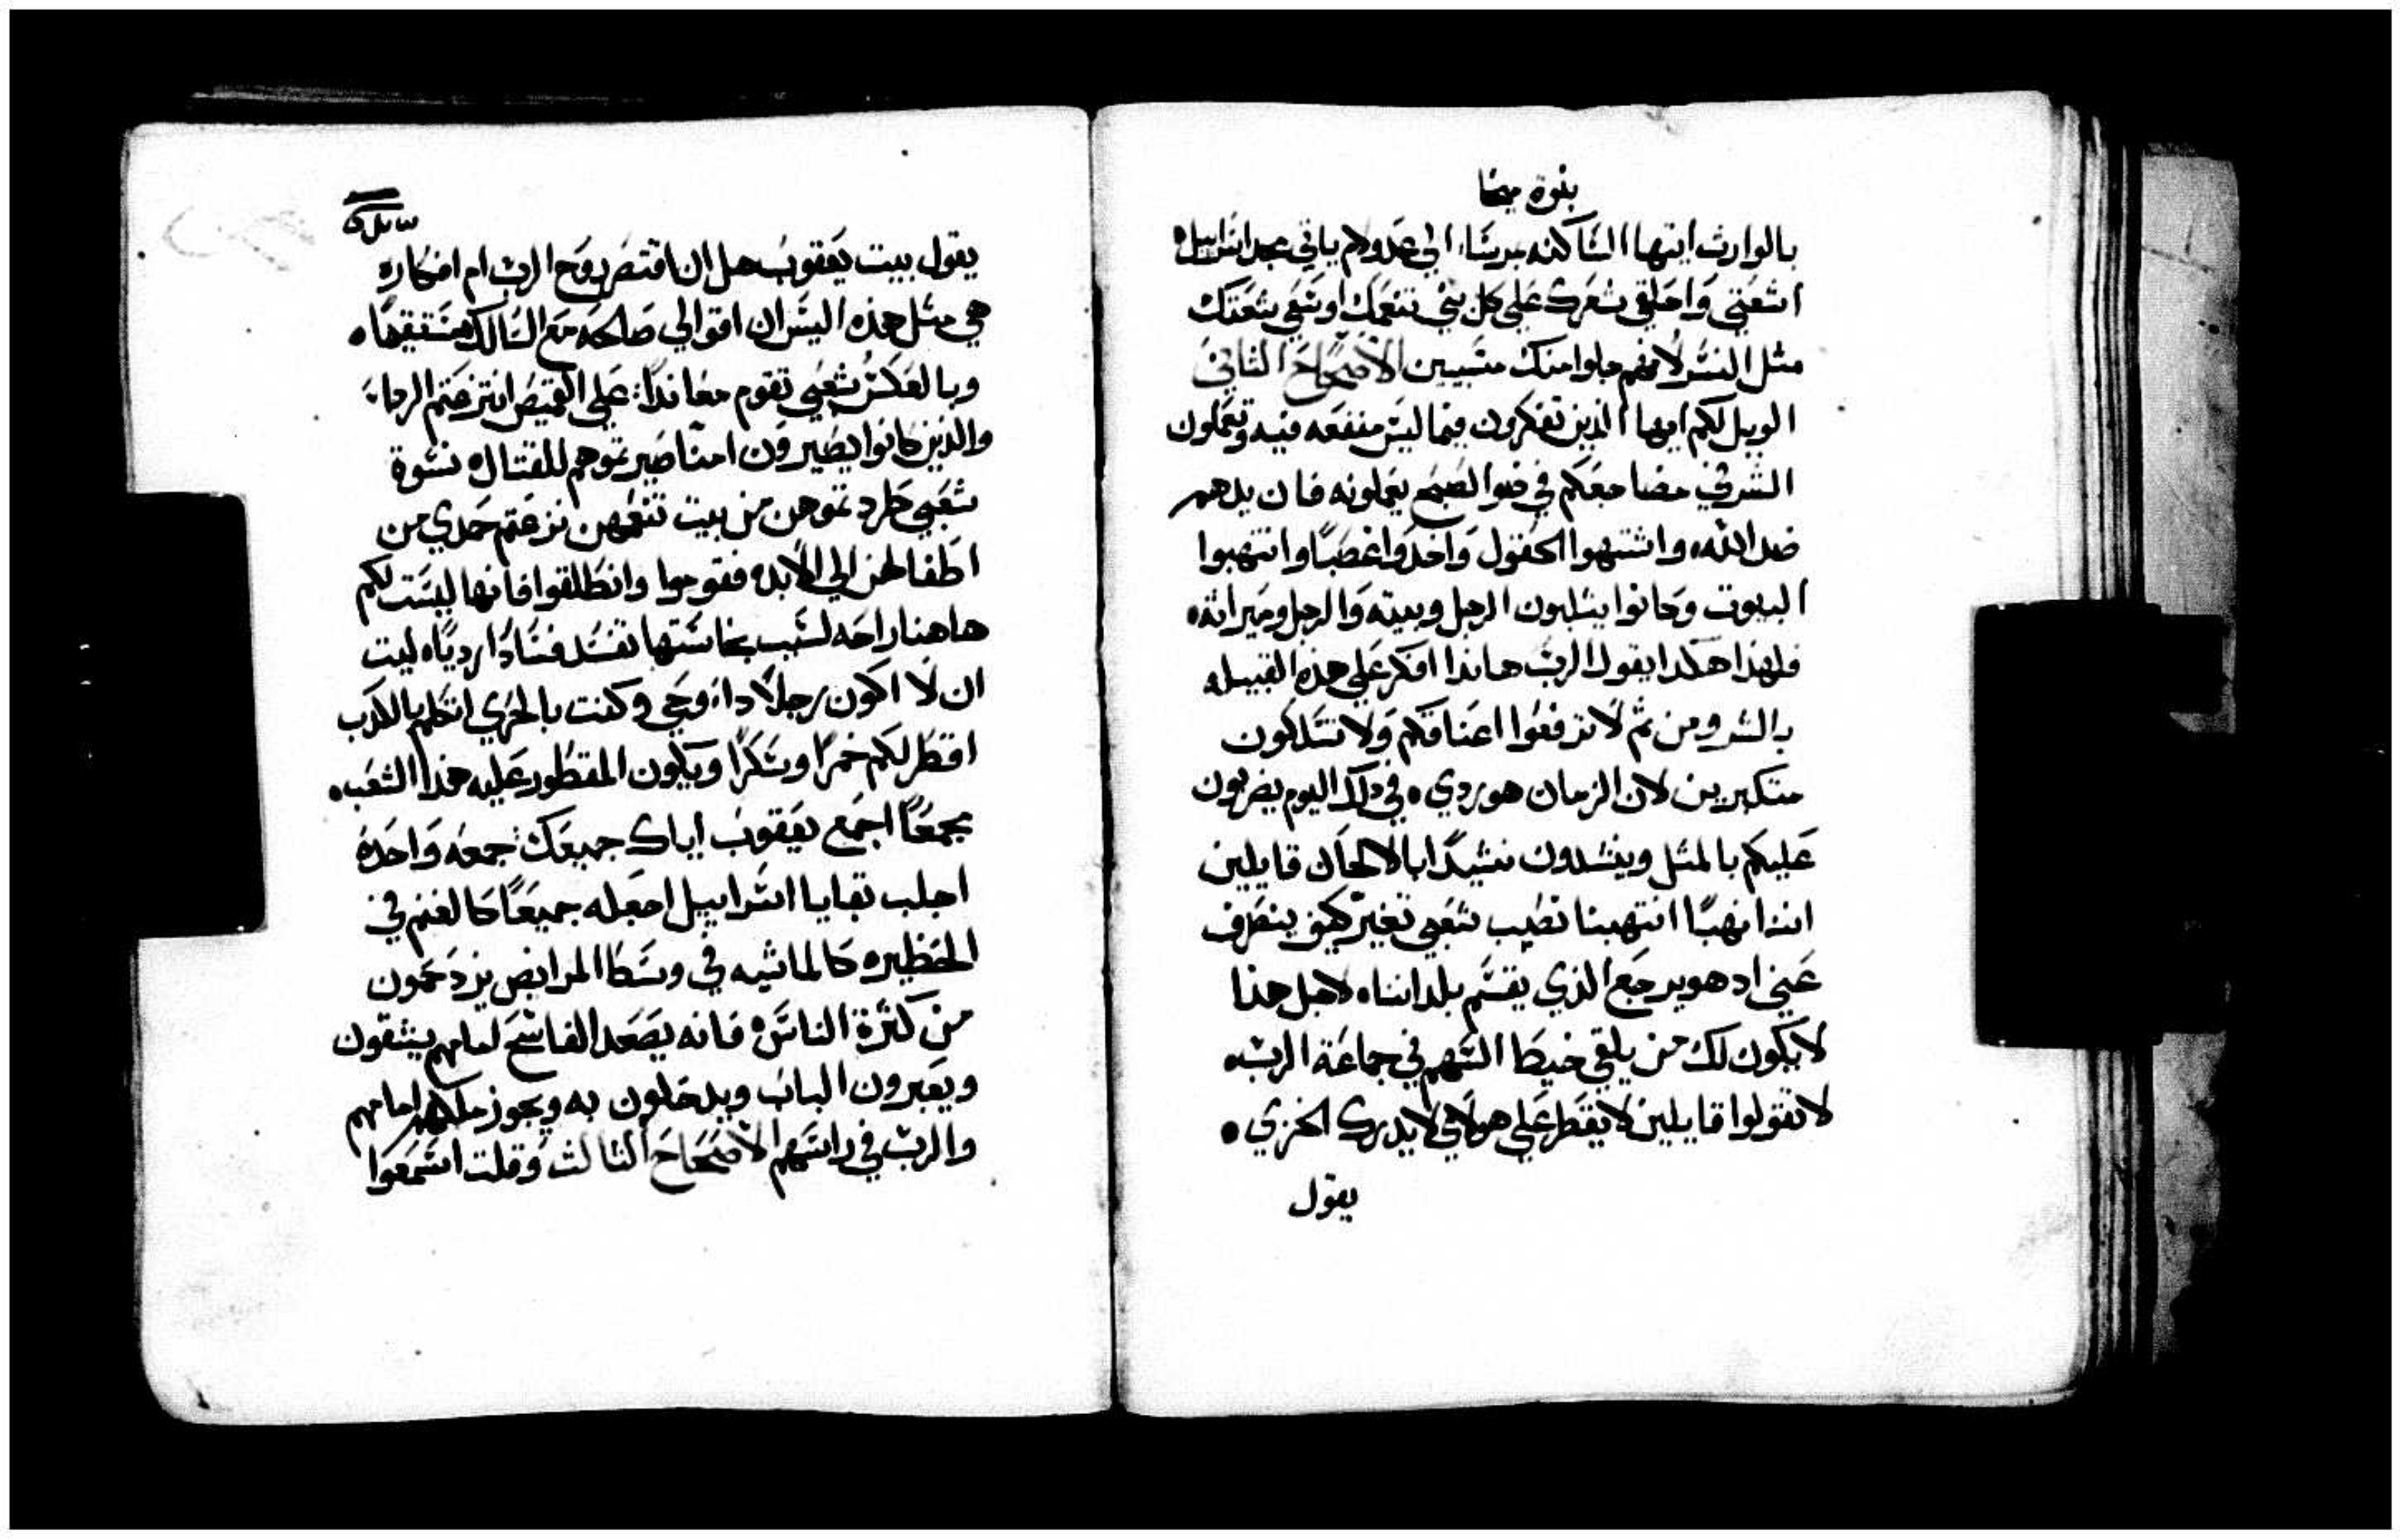 بنوة ميخا
بالوارث ايتها الساكنه مريشاء الي عدولام ياتي مجد اسراييل
اشعثي واحلقي شعرك علي كل بني تنعمك اوسعي شعثك
مثل النسر لانهم جلوا منك مسبيين الاصحاح الثاني
الويل لكم ايها الذين تفكرون فيما ليس منفعه فيه وتعملون
الشر في مضاجعكم في ضوا الصبح يعملونه فان يدهم
ضد الله واشتهوا الحقول واخدوا غصبًا وانتهبوا
البيوت وكانوا يثلبون الرجل وبيته والرجل وميراثه
فلهذا هكدا يقول الرب هاندا افكر علي هذه القبيله
بالشر ومن ثم لا ترفعوا اعناقكم ولا تسلكون
متكبرين لان الزمان هو ردي في دلك اليوم يضربون
عليكم بالمثل وينشدون نشيدًا بالالحان قايلين
اننا نهبًا انتهبنا نصيب شعبي تغير كيف ينصرف
عني اد هو يرجع الذي يقسم بلداننا لاجل هذا
لا يكون لك من يلقي خيط السهم في جماعة الرب
لا تقولوا قايلين لا يقطر علي هولاي لا يدرك الخزي
يقول
يقول بيت يعقوب هل ان اقتصر روح الرب ام افكاره
هي مثل هذه اليس ان اقوالي صالحه مع السالك مستقيمًا
وبالعكس شعبي تقوم معاندًا علي القميص انتزعتم الرداء
والذين كانوا يصيرون امنًا صيرتموهم للقتال نسوة
شعبي طردتموهن من بيت تنعمهن نزعتم حمدي من
اطفالهن الي الابد فقوموا وانطلقوا فانها ليست لكم
هاهنا راحه لسبب نجاستها تفسد فسادًا رديًا ليت
ان لا اكون رجلاً دا روحي وكنت بالحري اتكلم بالكدب
اقطر لكم خمرًا وسكرًا ويكون المقطور عليه هذا الشعب
بجمعًا اجمع يعقوب اياك جميعك جمعه واحده
اجلب بقايا اسراييل اجعله جميعًا كالغنم في
الحظيره كالماشيه في وسط المرابض يزدحمون
من كثرة الناس فانه يصعد الفاسخ امامهم يشقون
ويعبرون الباب ويدخلون به ويجوز ملكهم امامهم
والرب في راسهم الاصحاح الثالث وقلت اسمعوا